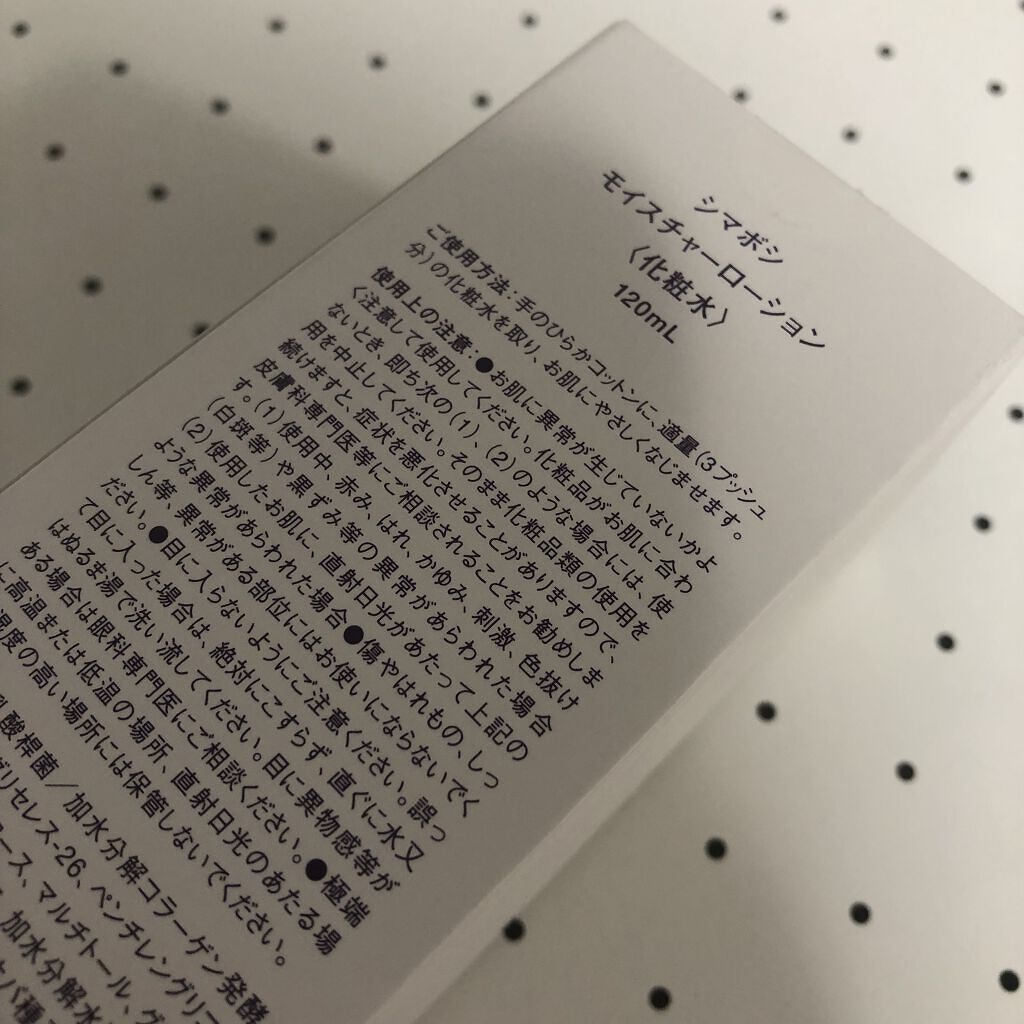 シマボシ
モイスチャーローション
〈化粧水〉
120mL
ご使用方法：手のひらかコットンに、適量（3プッシュ
分）の化粧水を取り、お肌にやさしくなじませます。
使用上の注意：●お肌に異常が生じていないかよ
く注意して使用してください。化粧品がお肌に合わ
ないとき、即ち次の（1）、（2）のような場合には、使
用を中止してください。そのまま化粧品類の使用を
続けますと、症状を悪化させることがありますので、
皮膚科専門医等にご相談されることをお勧めしま
す。（1）使用中、赤み、はれ、かゆみ、刺激、色抜け
（白斑等）や黒ずみ等の異常があらわれた場合
（2）使用したお肌に、直射日光があたって上記の
ような異常があらわれた場合●傷やはれもの、しっ
しん等、異常がある部位にはお使いにならないでく
ださい。●目に入らないようにご注意ください。誤っ
て目に入った場合は、絶対にこすらず、直ぐに水又
はぬるま湯で洗い流してください。目に異物感等が
ある場合は眼科専門医にご相談ください。●極端
に高温または低温の場所、直射日光のあたる場
湿度の高い場所には保管しないでください。
酸桿菌／加水分解コラーゲン発酵
グリセレス-26、ペンチレングリコ
ース、マルチトール、グ
加水分解水